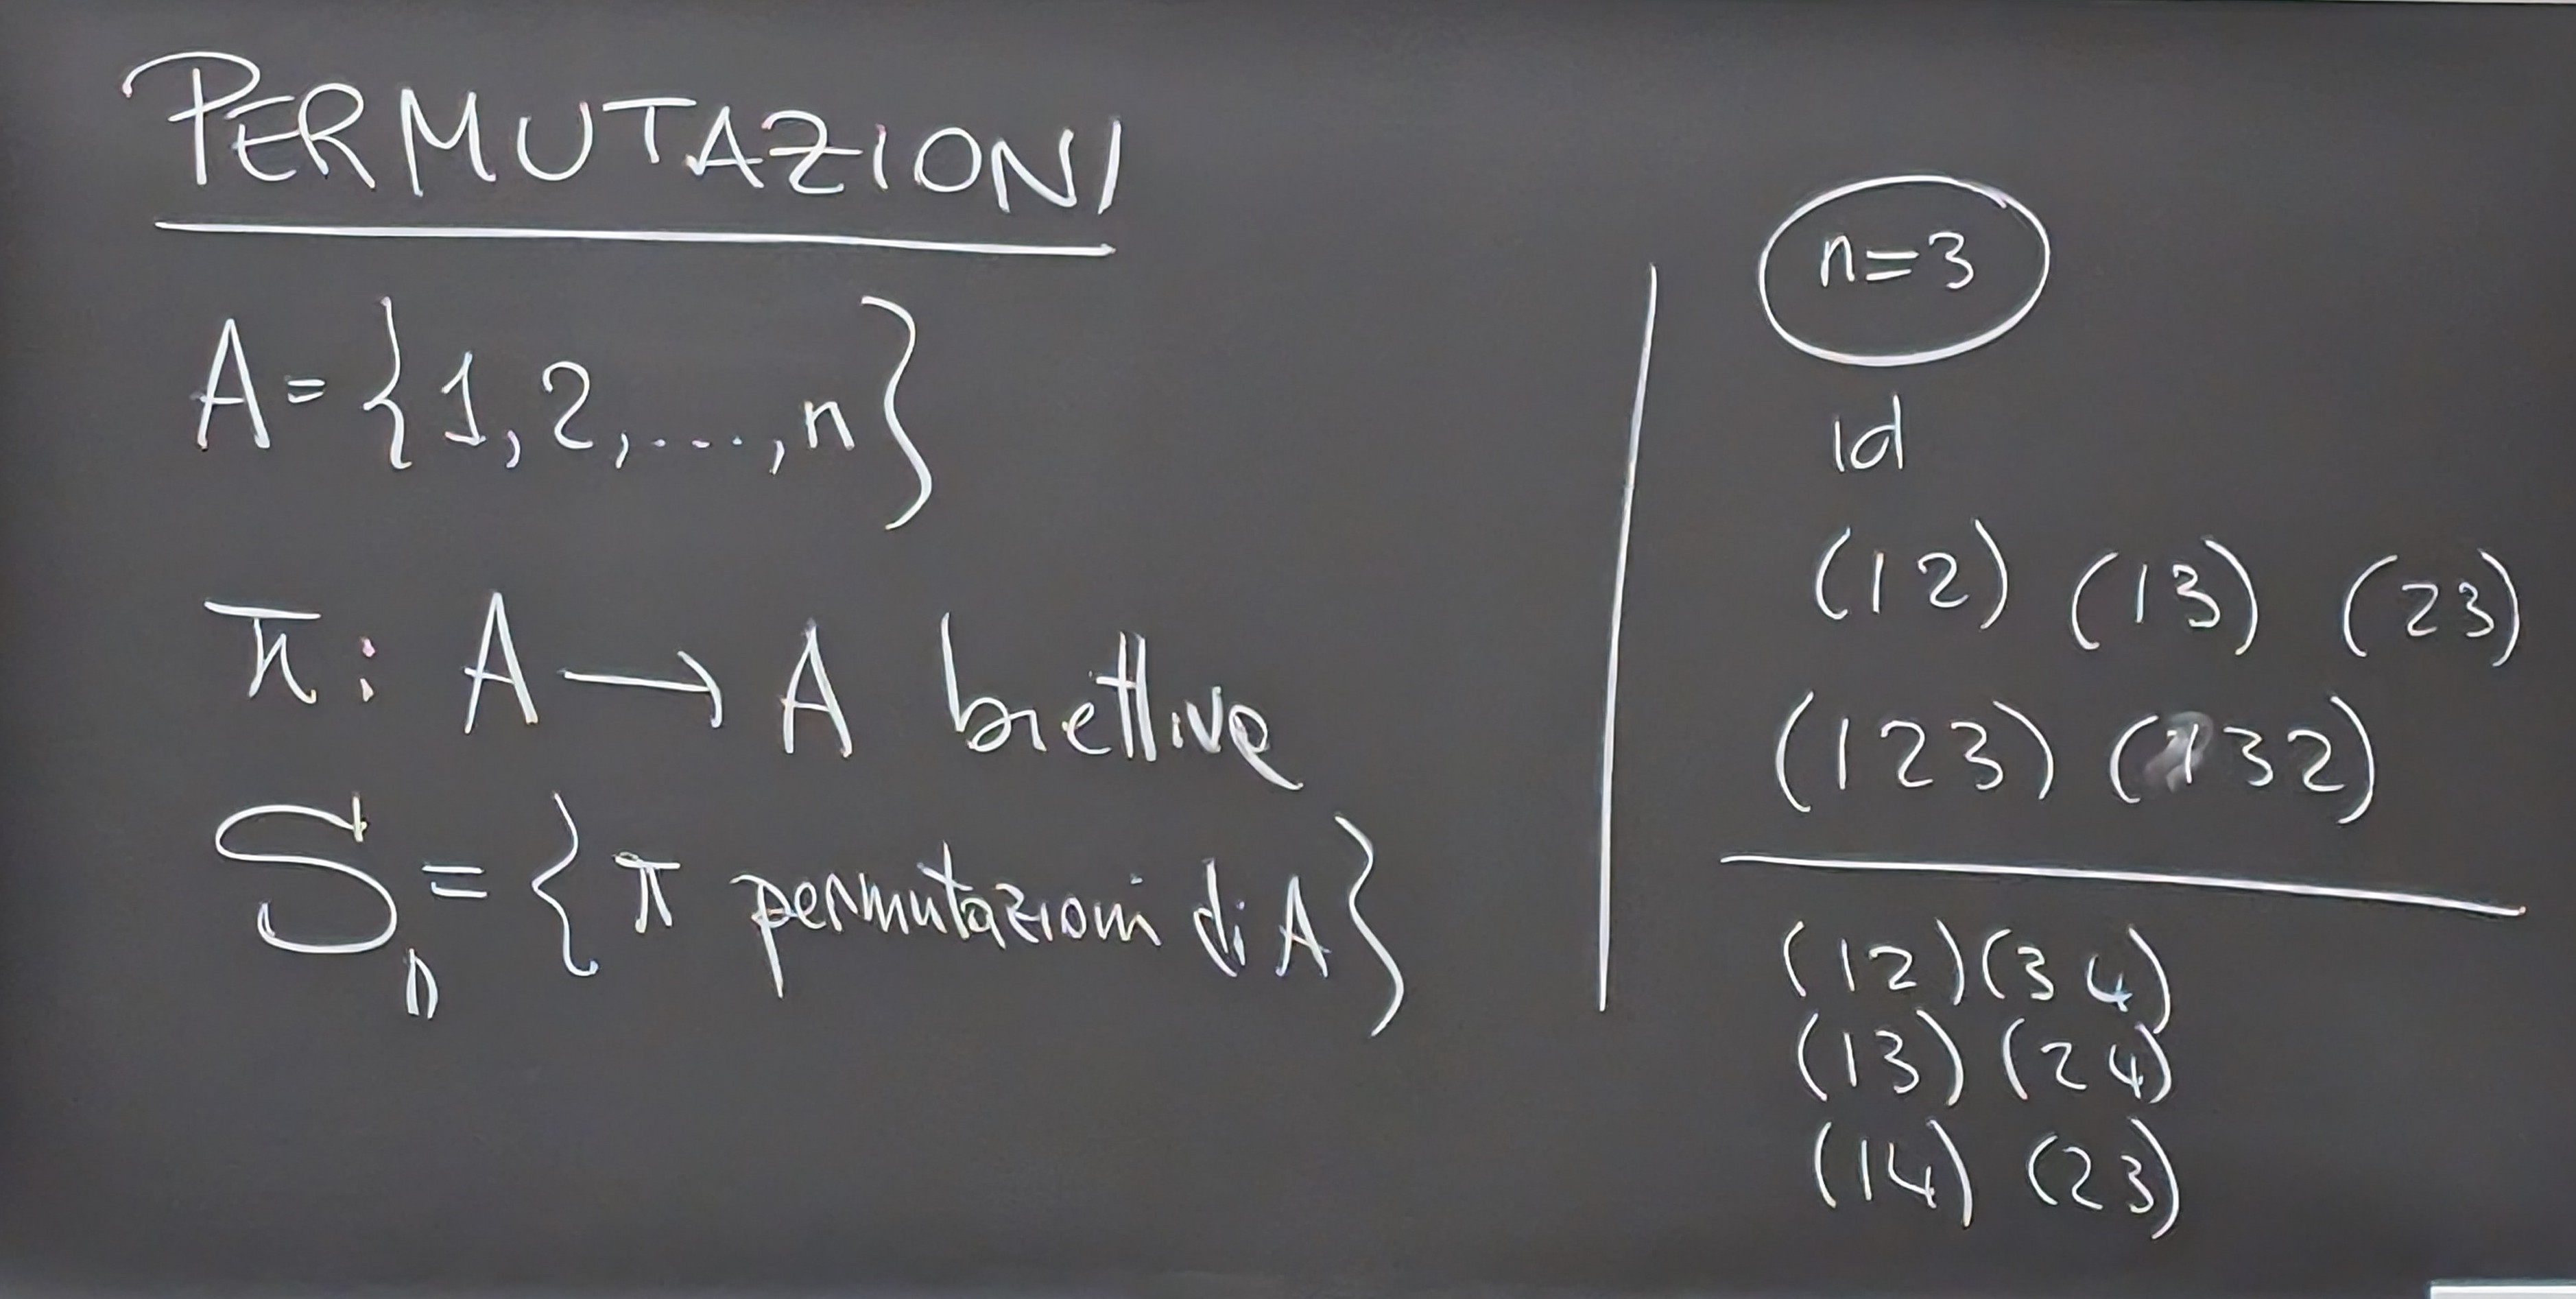 PERMUTAZIONI
A = {1, 2, ...., n}
π : A → A biettive
Sn = {π permutazioni di A}
n=3
id
(12) (13) (23)
(123) (132)
(12)(34)
(13) (24)
(14) (23)